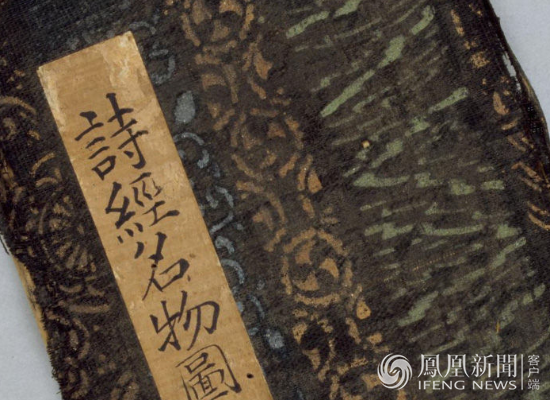 詩經名物圖
鳳凰新聞
客户端
IFENG NEWS